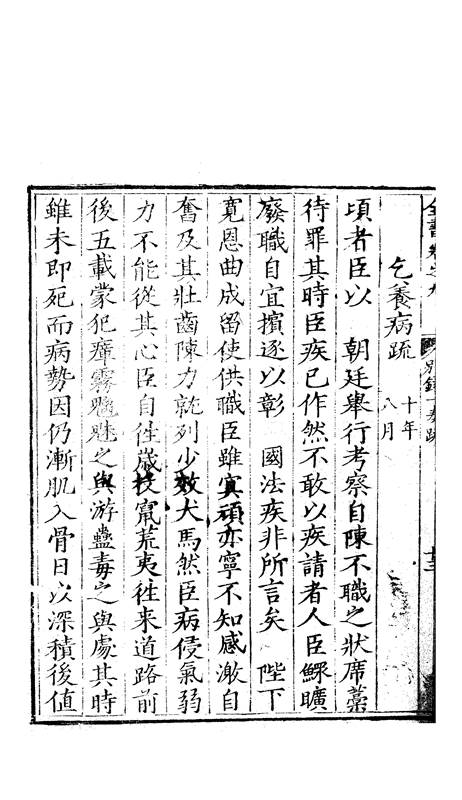 全書卷之九 別錄一 奏疏 十三
乞養病疏 十年八月
頃者臣以 朝廷舉行考察自陳不職之狀席藁
待罪其時臣疾已作然不敢以疾請者人臣鰥曠
廢職自宜擯逐以彰 國法疾非所言矣 陛下
寬恩曲成留使供職臣雖冥頑亦寧不知感激自
奮及其壯齒陳力就列少效犬馬然臣病侵氣弱
力不能從其心臣自往歲投竄荒夷往來道路前
後五載蒙犯瘴霧魑魅之與游蠱毒之與處其時
雖未即死而病勢因仍漸肌入骨日以深積後值